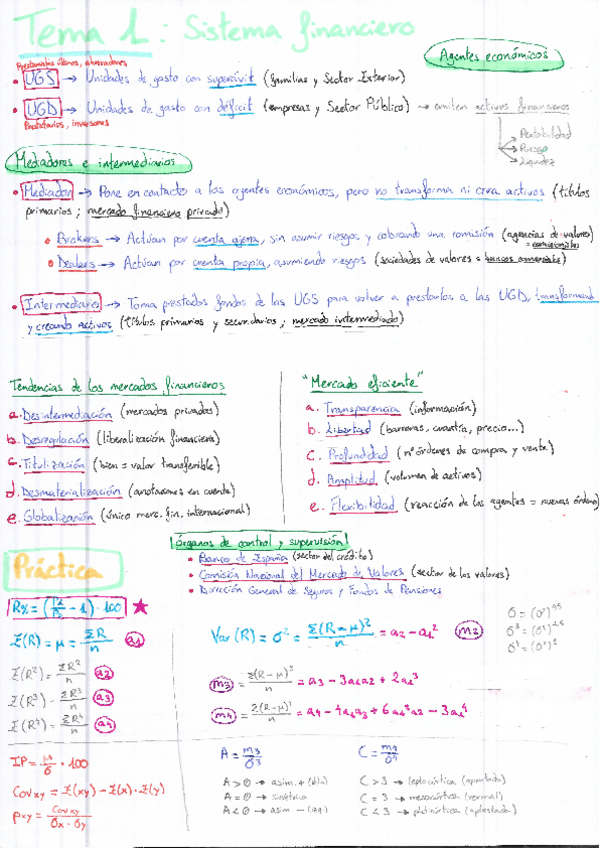 Tema 1: Sistema financiero
Agentes económicos
Prestamistas últimos, ahorradores
• UGS → Unidades de gasto con superávit (familias y Sector Exterior)
• UGD → Unidades de gasto con déficit (empresas y Sector Público) → emiten activos financieros
Prestatarios, inversores
Rentabilidad
Riesgo
Liquidez
Mediadores e intermediarios
• Mediador → Pone en contacto a los agentes económicos, pero no transforma ni crea activos (títulos
primarios; mercado financiero privado)
• Brokers → Actúan por cuenta ajena, sin asumir riesgos y cobrando una comisión (agencias de valores)
= comisionistas
• Dealers → Actúan por cuenta propia, asumiendo riesgos (sociedades de valores = bancos comerciales)
• Intermediario → Toma prestados fondos de las UGS para volver a prestarlos a las UGD, transformando
y creando activos (títulos primarios y secundarios; mercado intermediado)
Tendencias de los mercados financieros
a. Desintermediación (mercados privados)
b. Desregulación (liberalización financiera)
c. Titulización (bien = valor transferible)
d. Desmaterialización (anotaciones en cuenta)
e. Globalización (único merc. fin. internacional)
"Mercado eficiente"
a. Transparencia (información)
b. Libertad (barreras, cuantía, precio...)
c. Profundidad (nº órdenes de compra y venta)
d. Amplitud (volumen de activos)
e. Flexibilidad (reacción de los agentes = nuevas órdenes)
¡Órganos de control y supervisión!
• Banco de España (sector del crédito)
• Comisión Nacional del Mercado de Valores (sector de los valores)
• Dirección General de Seguros y Fondos de Pensiones
Práctica
- 1) · 100 ★
E(R) = μ = ΣR/n a1
E(R²) = ΣR²/n a2
E(R³) = ΣR³/n a3
E(R⁴) = ΣR⁴/n a4
Var(R) = σ² = Σ(R-μ)²/n = a2 - a1² m2
m3 = Σ(R-μ)³/n = a3 - 3a1a2 + 2a1³
m4 = Σ(R-μ)⁴/n = a4 - 4a1a3 + 6a1²a2 - 3a1⁴
σ = (σ²)
σ³ = (σ²)
σ⁴ = (σ²)
· 100
Covxy = E(xy) - E(x) · E(y)
ρxy = Covxy/σx · σy
A = m3/σ³
A > 0 → asim. + (dcha)
A = 0 → simétrica
A < 0 → asim - (izq)
C = m4/σ⁴
C > 3 → leptocúrtica (apuntada)
C = 3 → mesocúrtica (normal)
C < 3 → platicúrtica (aplastada)